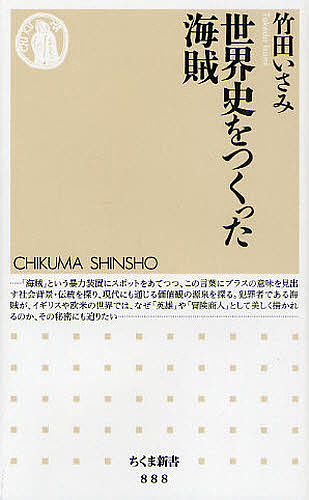 竹田いさみ
Takeda Isami
世界史をつくった
海賊
CHIKUMA SHINSHO
……「海賊」という暴力装置にスポットをあてつつ、この言葉にプラスの意味を見出
す社会背景・伝統を探り、現代にも通じる価値観の源泉を探る。犯罪者である海
賊が、イギリスや欧米の世界では、なぜ「英雄」や「冒険商人」として美しく描かれ
るのか、その秘密にも迫りたい……
ちくま新書
888